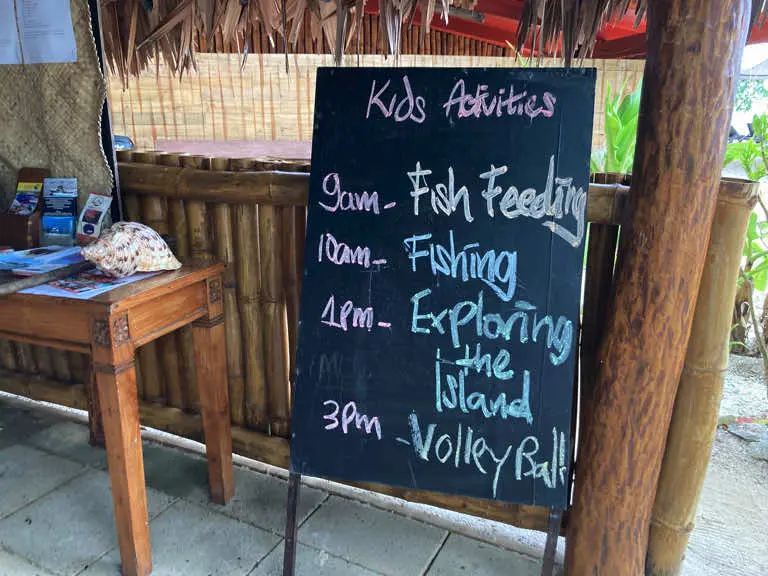 Kids Activities
9am - Fish Feeding
10am - Fishing
1pm - Exploring
the
Island
3pm - VolleyBall